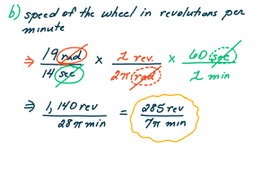 b) speed of the wheel in revolutions per
minute
⇒ 19 rad / 14 sec × 1 rev. / 2π rad × 60 sec / 1 min
⇒ 1,140 rev / 28π min = 285 rev / 7π min